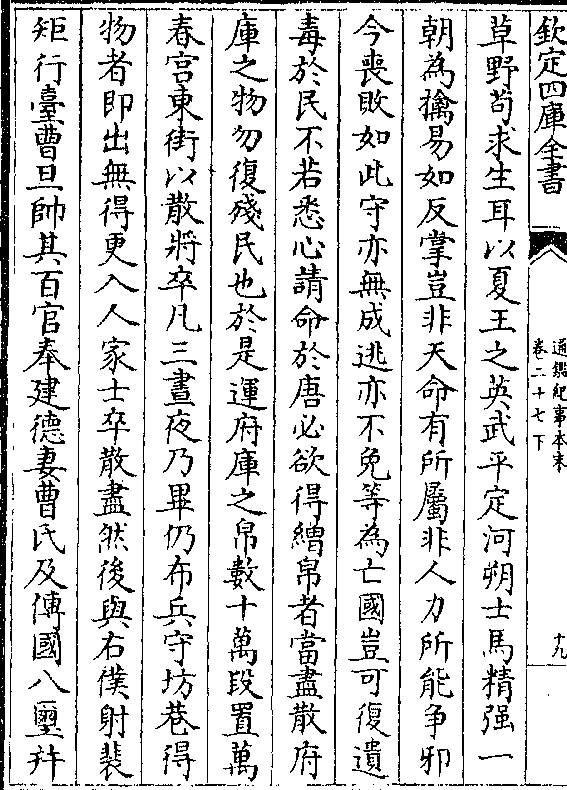 欽定四庫全書
通鑑紀事本末
卷二十七下
十九
草野苟求生耳以夏王之英武平定河朔士馬精强一
朝為擒易如反掌豈非天命有所屬非人力所能爭邪
今喪敗如此守亦無成逃亦不免等為亡國豈可復遺
毒於民不若悉心請命於唐必欲得繒帛者當盡散府
庫之物勿復殘民也於是運府庫之帛數十萬段置萬
春宮東街以散將卒凡三晝夜乃畢仍布兵守坊巷得
物者即出無得更入人家士卒散盡然後與右僕射裴
矩行臺曹旦帥其百官奉建德妻曹氏及傳國八璽幷